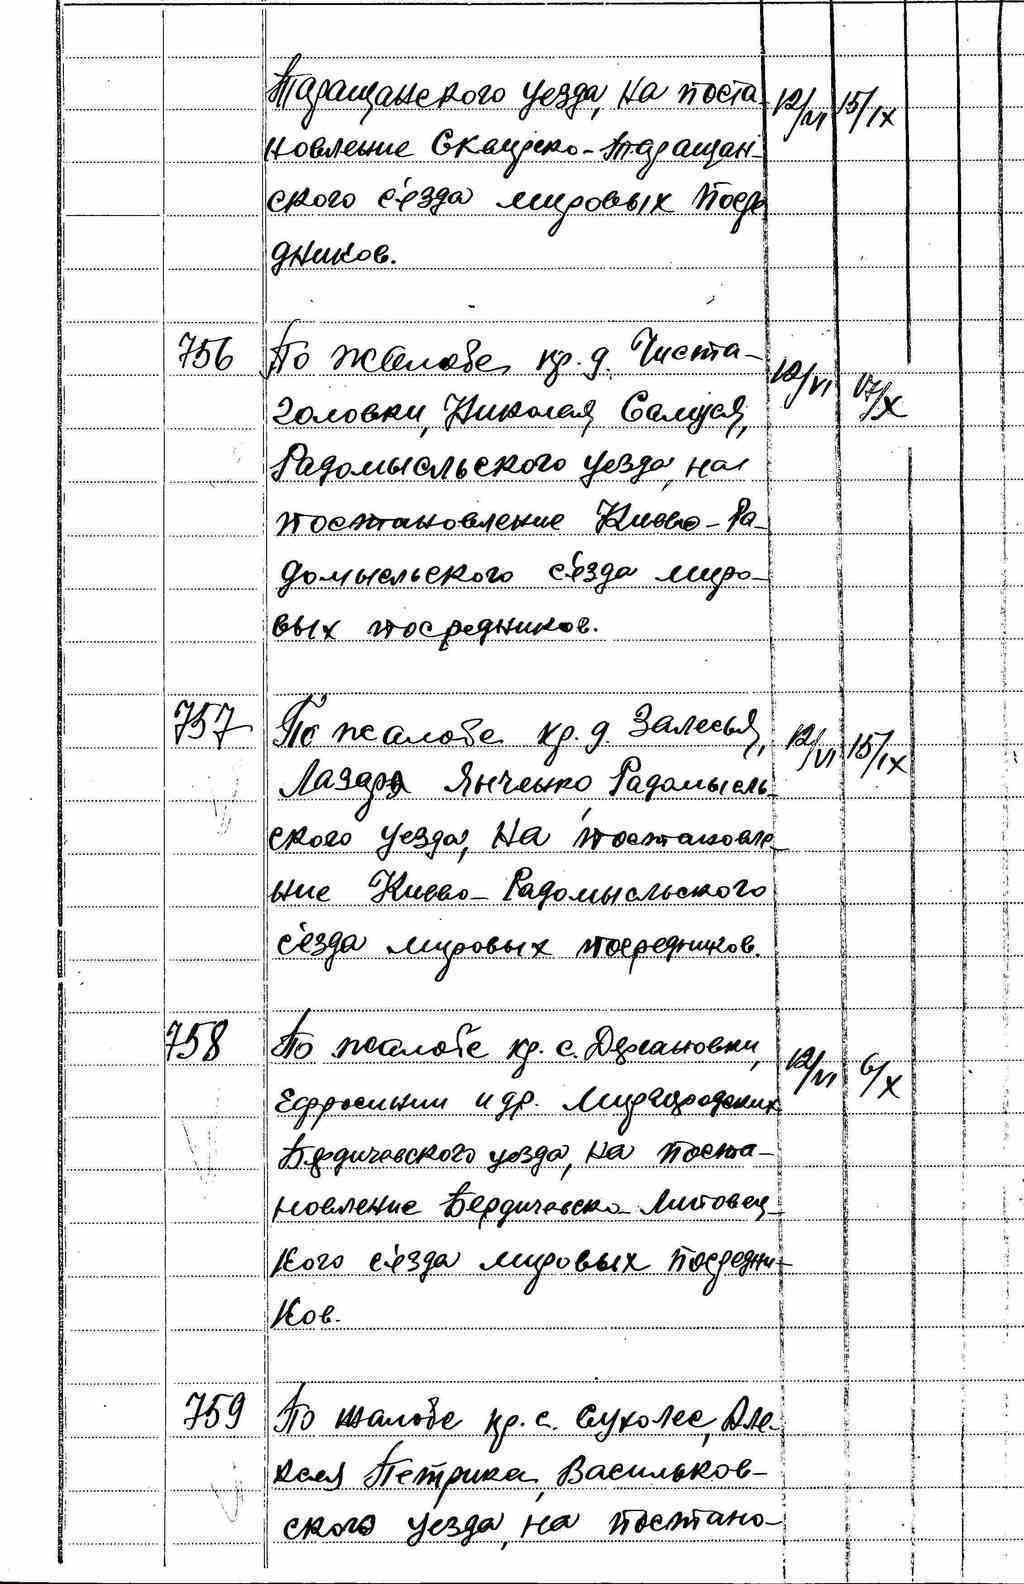 Таращанского уезда, на поста- 12/VI 15/IX
новление Сквирско-Таращан-
ского с'езда мировых посре
дников.
756 По жалобе кр. д. Чиста- 12/VI 17/X
головки, Николая Самуся,
Радомысльского уезда, на
постановление Киево-Ра-
домысльского с'езда миро-
вых посредников.
757 По жалобе кр. д. Залесья, 12/VI 15/IX
Лазаря Янченко, Радомысль-
ского уезда, на постановле-
ние Киево-Радомысльского
с'езда мировых посредников.
758 По жалобе кр. с. 12/VI 6/X
Ефросинии и др. Миргородских
Бердичевского уезда, на поста-
новление Бердичевско-Липовец-
кого с'езда мировых посредни-
ков.
759 По жалобе кр. с. Сухолес, Але-
ксея Петрика, Васильков-
ского уезда, на постано-